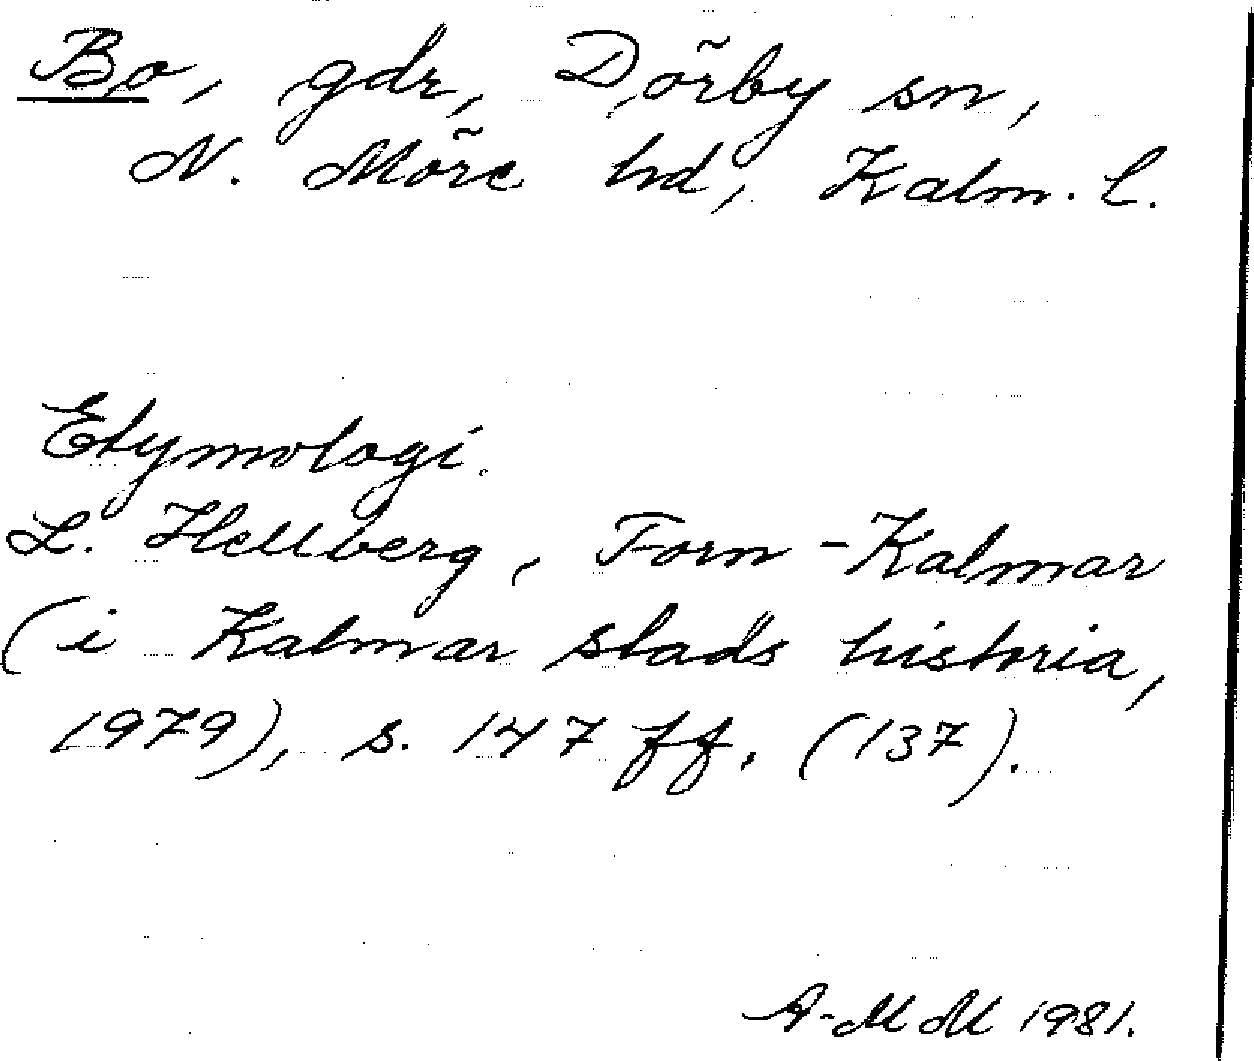 Bo, gdr, Dörby sn,
N. Möre hd, Kalm. l.
Etymologi.
L. Hellberg, Forn-Kalmar
(i Kalmar stads historia,
1979), s. 147 ff. (137).
A-MM 1981.